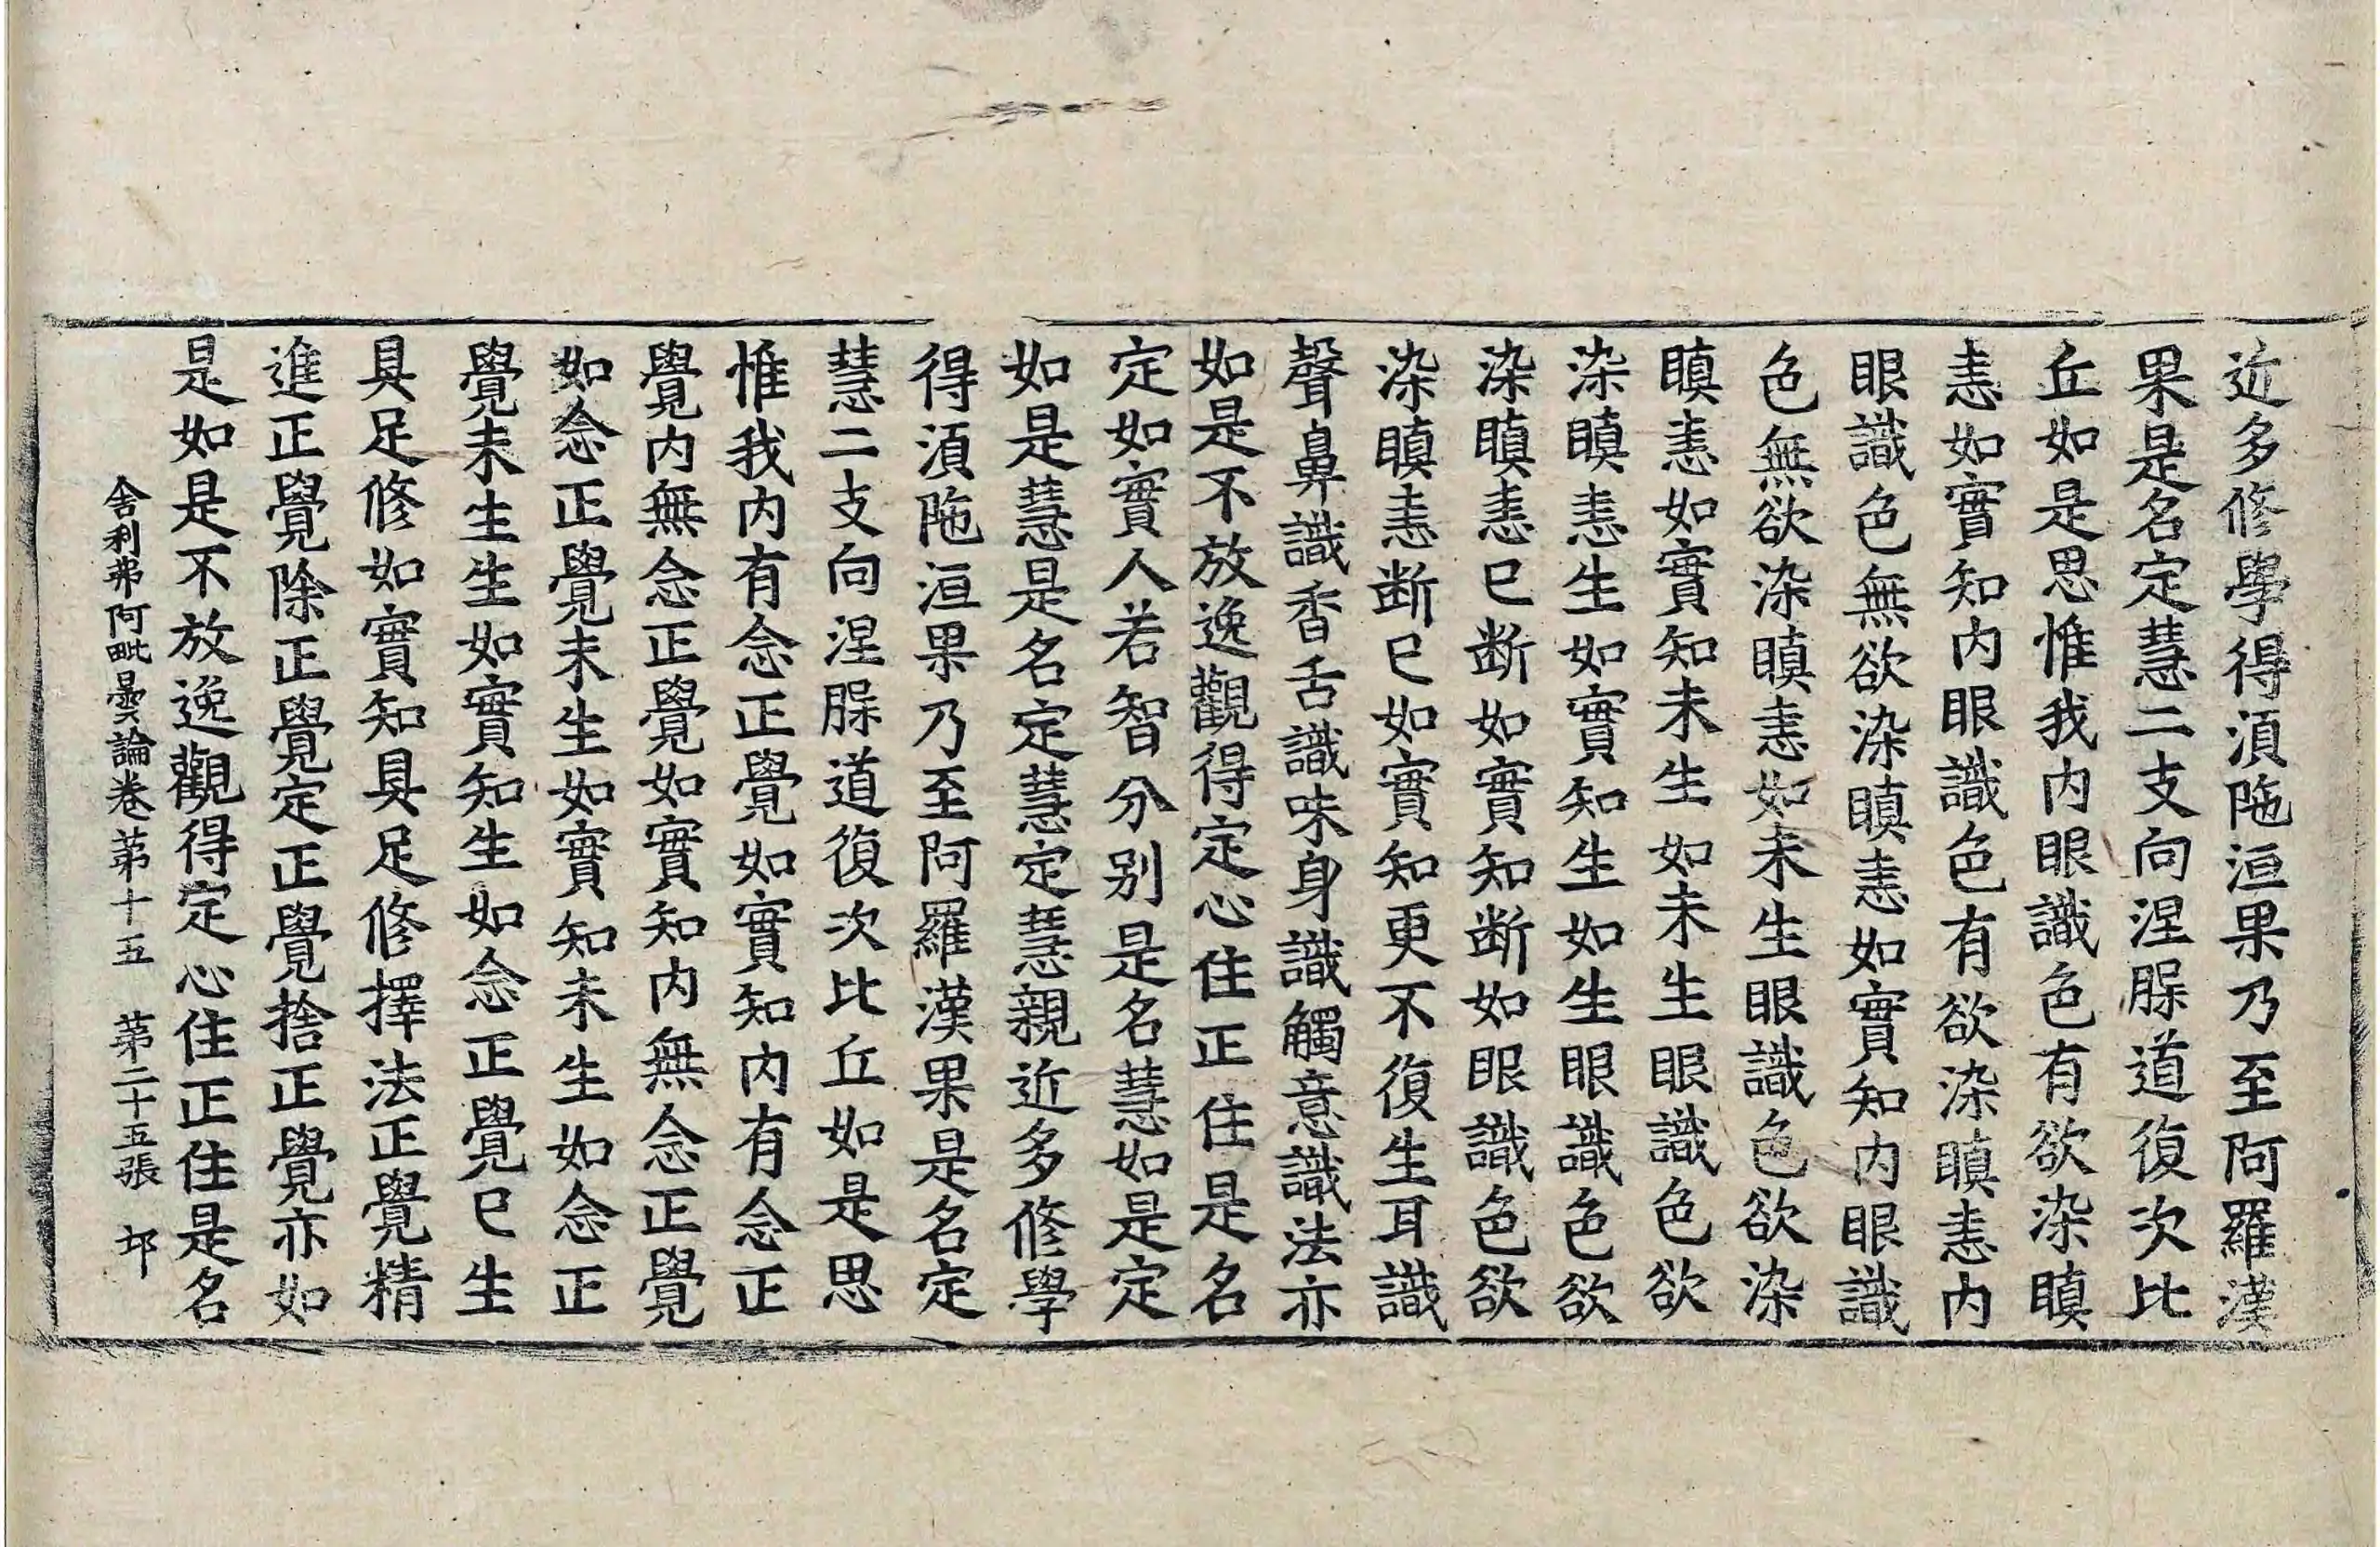 近多修學得湏陁洹果乃至阿羅漢
果是名定慧二支向涅脲道復次比
丘如是思惟我内眼識色有欲染瞋
恚如實知内眼識色有欲染瞋恚内
眼識色無欲染瞋恚如實知内眼識
色無欲染瞋恚如未生眼識色欲染
瞋恚如實知未生如未生眼識色欲
染瞋恚生如實知生如生眼識色欲
染瞋恚已断如實知断如眼識色欲
染瞋恚断已如實知更不復生耳識
聲鼻識香舌識味身識觸意識法亦
如是不放逸觀得定心住正住是名
定如實人若智分别是名慧如是定
如是慧是名定慧定慧親近多修學
得湏陁洹果乃至阿羅漢果是名定
慧二支向涅脲道復次比丘如是思
惟我内有念正覺如實知内有念正
覺内無念正覺如實知内無念正覺
如念正覺未生如實知未生如念正
覺未生生如實知生如念正覺已生
具足修如實知具足修擇法正覺精
進正覺除正覺定正覺捨正覺亦如
是如是不放逸觀得定心住正住是名
舎利弗阿毗曇論卷苐十五　苐二十五張　卭